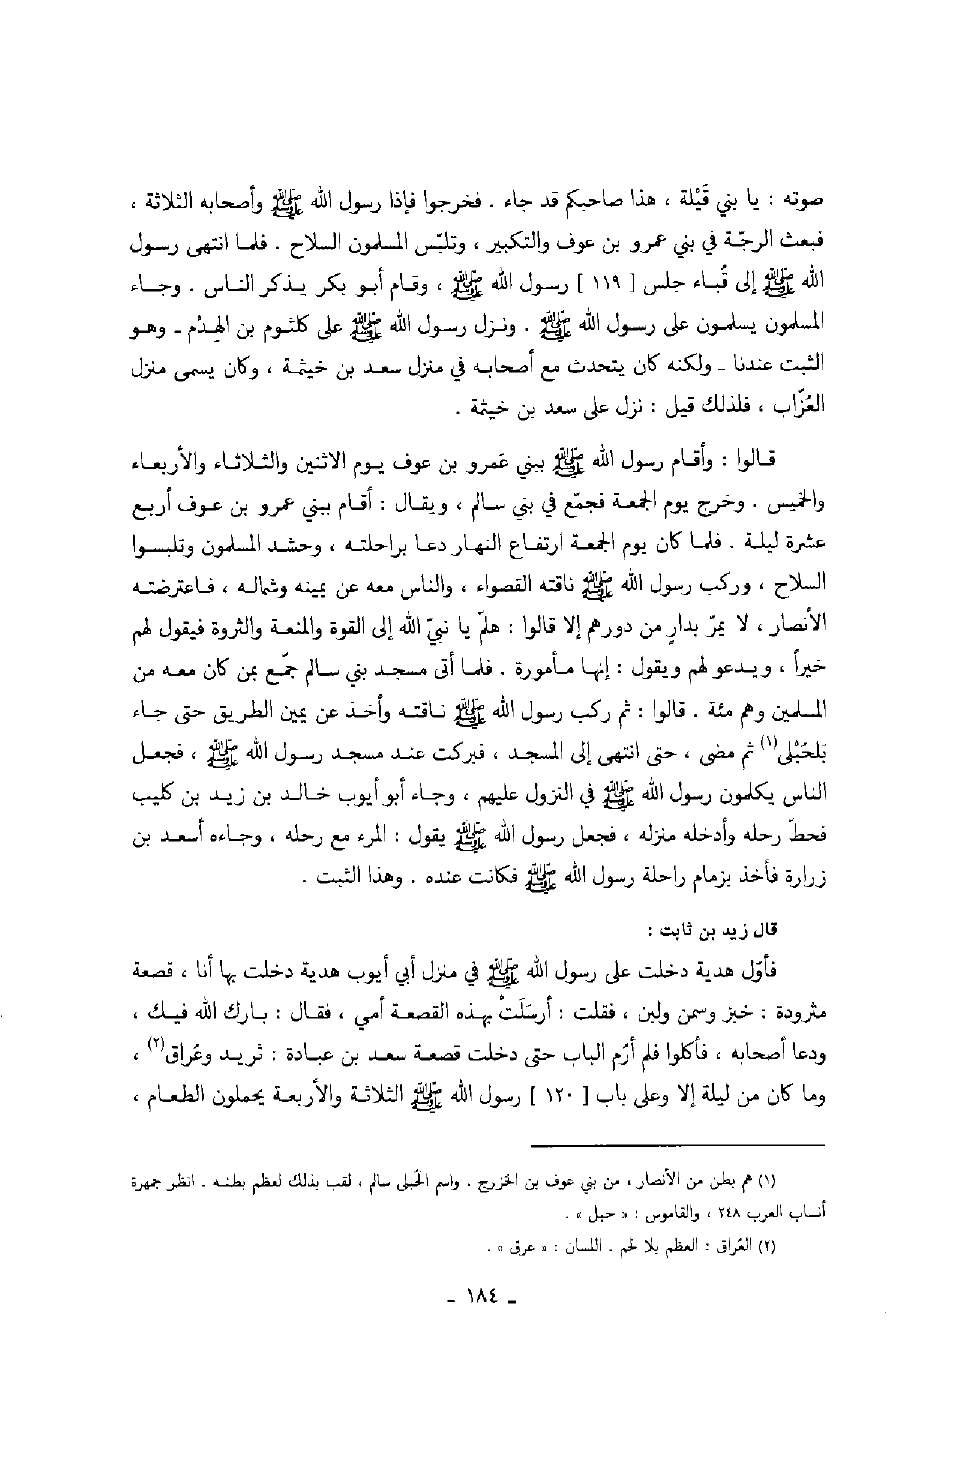 صوته : يا بني قَيْلة ، هذا صاحبكم قد جاء . فخرجوا فإذا رسول الله ﷺ وأصحابه الثلاثة ،
فبعث الرجّة في بني عمرو بن عوف والتكبير ، وتلبّس المسلمون السلاح . فلما انتهى رسول
الله ﷺ إلى قُباء جلس [ ١١٩ ] رسول الله ﷺ ، وقام أبو بكر يذكر الناس . وجاء
المسلمون يسلمون على رسول الله ﷺ . ونزل رسول الله ﷺ على كلثوم بن الهِدْم - وهو
الثبت عندنا - ولكنه كان يتحدث مع أصحابه في منزل سعد بن خيثمة ، وكان يسمى منزل
العُزّاب ، فلذلك قيل : نزل على سعد بن خيثمة .
قالوا : وأقام رسول الله ﷺ ببني عمرو بن عوف يوم الاثنين والثلاثاء والأربعاء
والخميس . وخرج يوم الجمعة فجمّع في بني سالم ، ويقال : أقام ببني عمرو بن عوف أربع
عشرة ليلة . فلما كان يوم الجمعة ارتفاع النهار دعا براحلته ، وحشد المسلمون وتلبسوا
السلاح ، وركب رسول الله ﷺ ناقته القصواء ، والناس معه عن يمينه وشماله ، فاعترضته
الأنصار ، لا يمرّ بدارٍ من دورهم إلا قالوا : هلمّ يا نبيّ الله إلى القوة والمنعة والثروة فيقول لهم
خيراً ، ويدعو لهم ويقول : إنها مأمورة . فلما أتى مسجد بني سالم جمّع بمن كان معه من
المسلمين وهم مئة . قالوا : ثم ركب رسول الله ﷺ ناقته وأخذ عن يمين الطريق حتى جاء
بَلحُبْلى(١) ثم مضى ، حتى انتهى إلى المسجد ، فبركت عند مسجد رسول الله ﷺ ، فجعل
الناس يكلمون رسول الله ﷺ في النزول عليهم ، وجاء أبو أيوب خالد بن زيد بن كليب
فحطّ رحله وأدخله منزله ، فجعل رسول الله ﷺ يقول : المرء مع رحله ، وجاءه أسعد بن
زرارة فأخذ بزمام راحلة رسول الله ﷺ فكانت عنده . وهذا الثبت .
قال زيد بن ثابت :
فأوّل هدية دخلت على رسول الله ﷺ في منزل أبي أيوب هدية دخلت بها أنا ، قصعة
مثرودة : خبز وسمن ولبن ، فقلت : أرسَلَتْ بهذه القصعة أمي ، فقال : بارك الله فيك ،
ودعا أصحابه ، فأكلوا فلم أَرُم الباب حتى دخلت قصعة سعد بن عبادة : ثريد وعُراق(٢) ،
وما كان من ليلة إلا وعلى باب [ ١٢٠ ] رسول الله ﷺ الثلاثة والأربعة يحملون الطعام ،
(١) هم بطن من الأنصار ، من بني عوف بن الخزرج . واسم الحُبلى سالم ، لقب بذلك لعظم بطنه . انظر جمهرة
أنساب العرب ٢٤٨ ، والقاموس : « حبل » .
(٢) العُراق : العظم بلا لحم . اللسان : « عرق » .
- ١٨٤ -